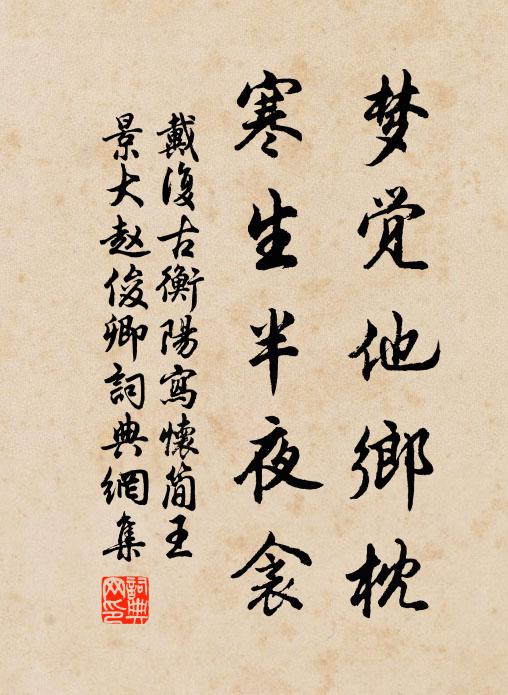 梦觉他鄉枕
寒生半夜衾
戴復古衡陽寫懷简王
景大赵俊卿詞典網集
詞典網印